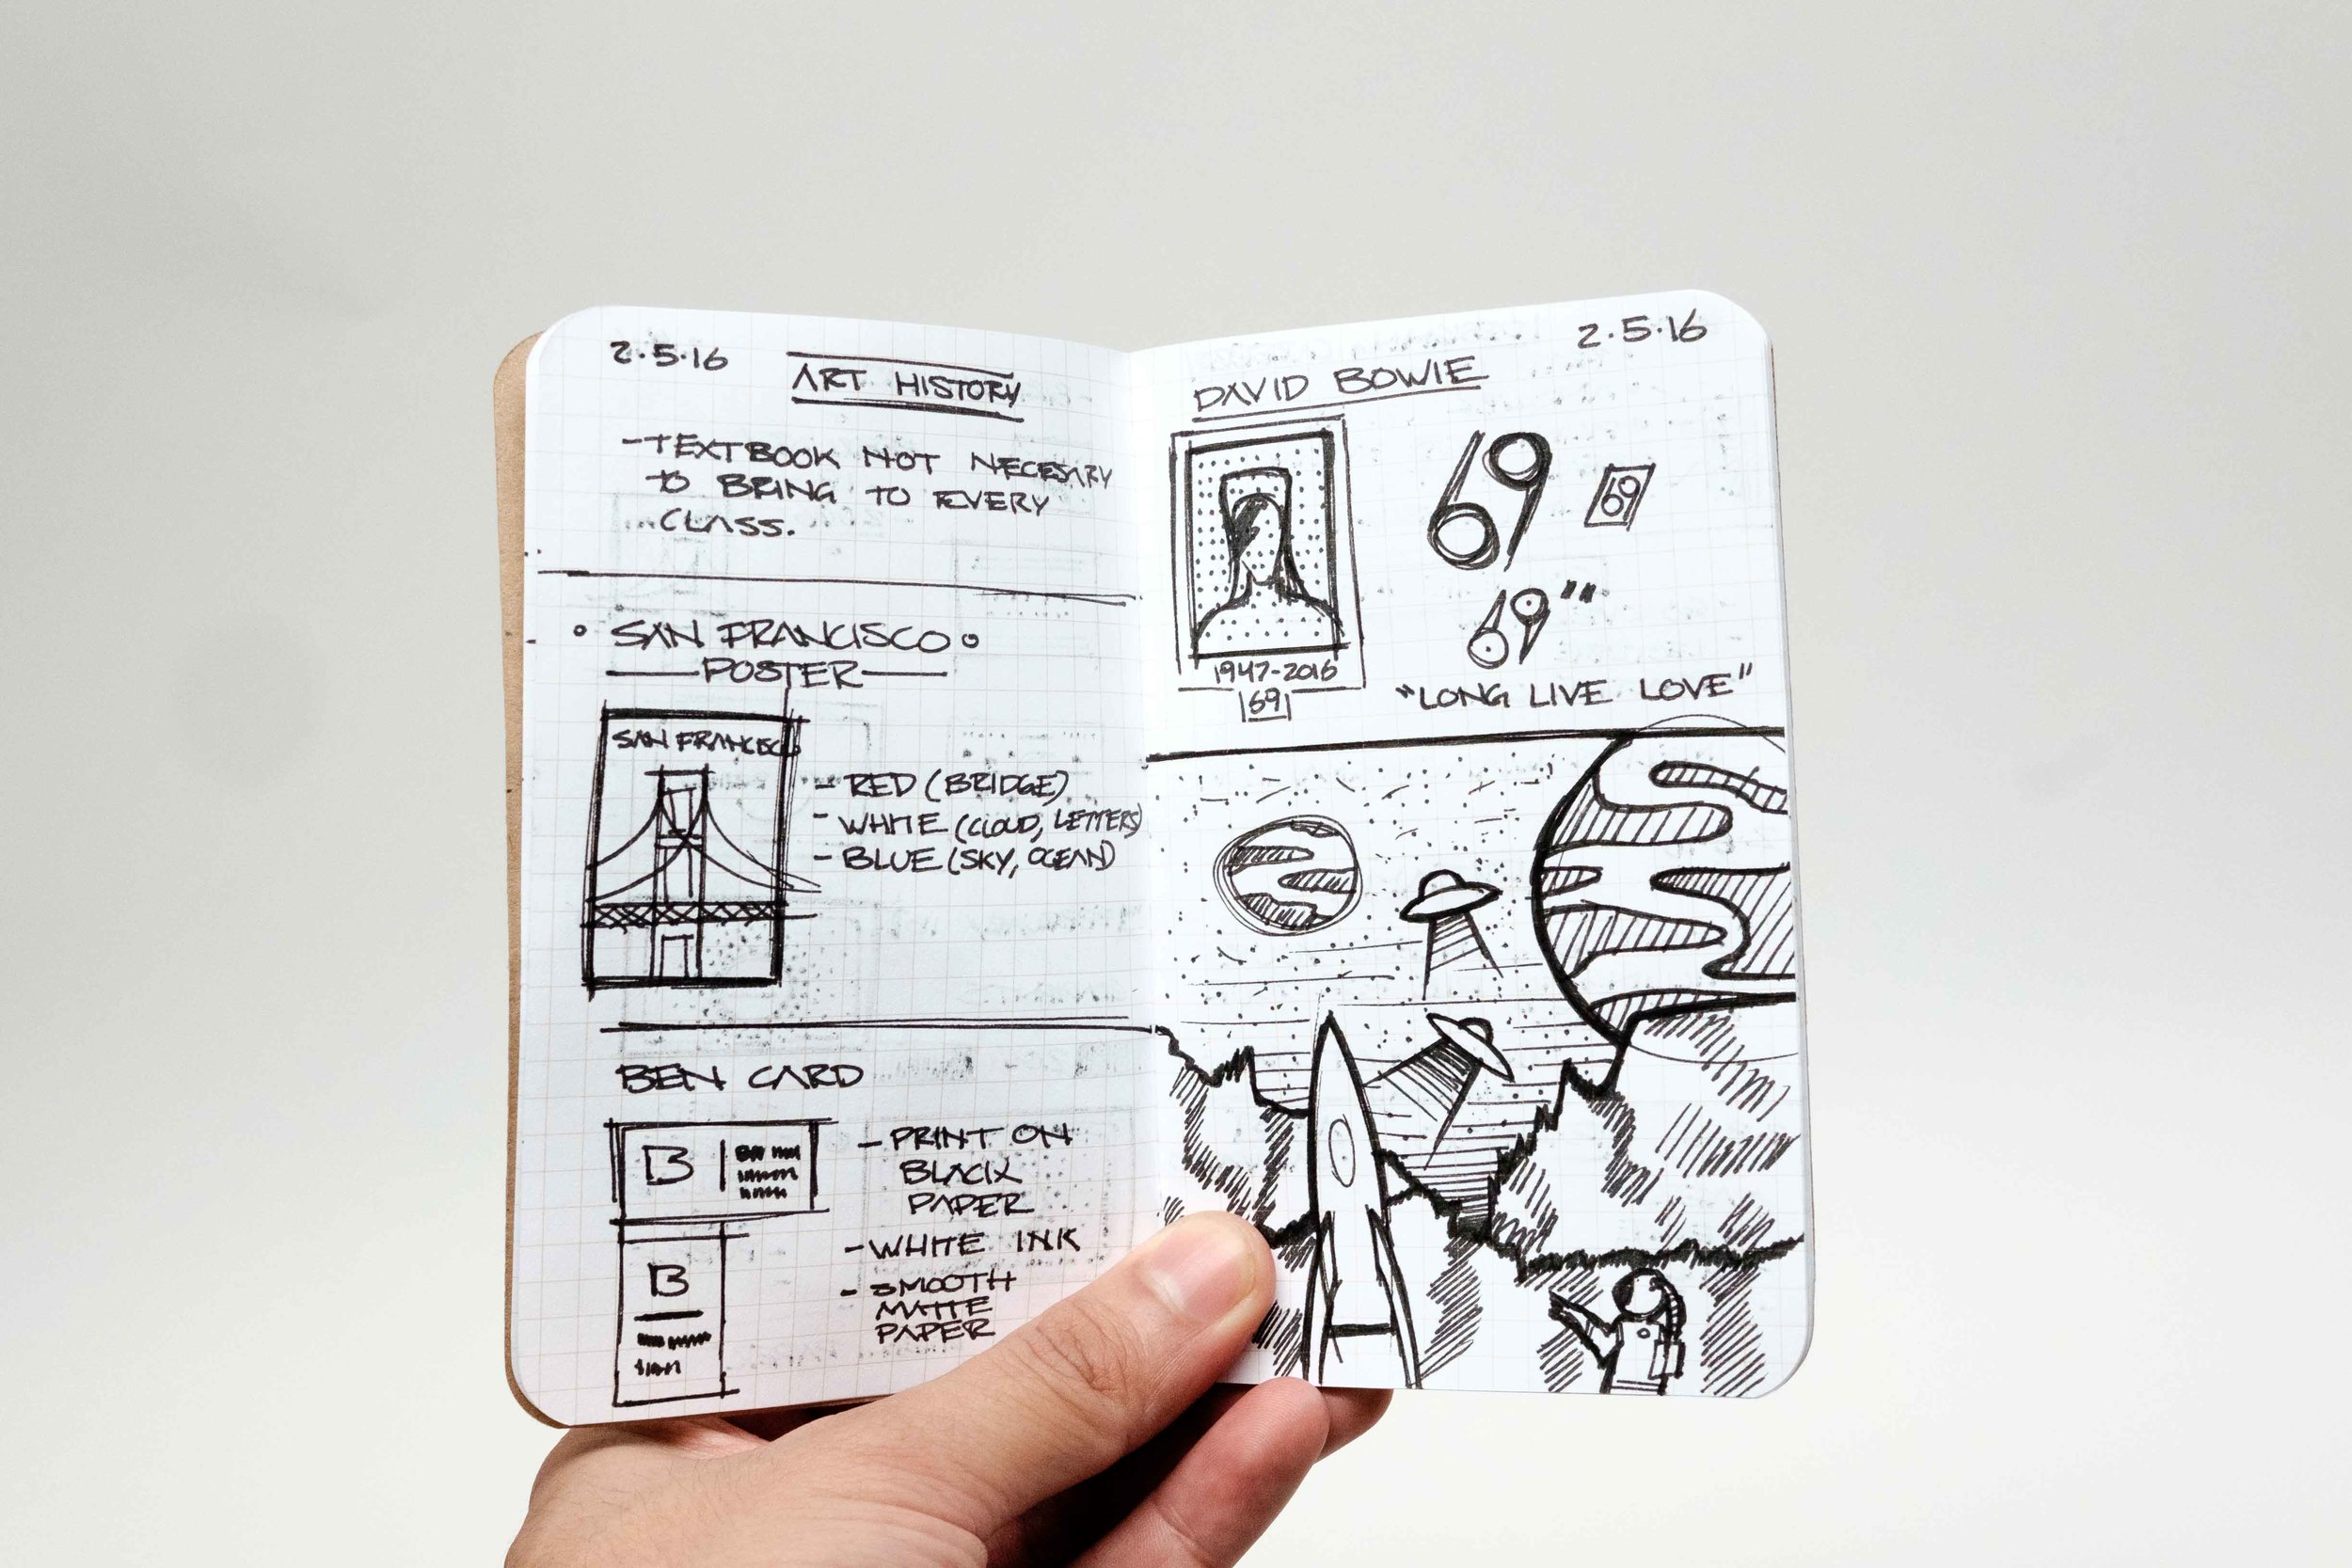 2.5.16
ART HISTORY
-TEXTBOOK NOT NECESARY
TO BRING TO EVERY
CLASS.
SAN FRANCISCO
POSTER
SAN FRANCISCO
- RED (BRIDGE)
- WHITE (CLOUD, LETTERS)
- BLUE (SKY, OCEAN)
BEN CARD
B
B
- PRINT ON
BLACK
PAPER
- WHITE INK
- SMOOTH
MATTE
PAPER
2.5.16
DAVID BOWIE
1947-2016
69
69
69
69"
"LONG LIVE LOVE"